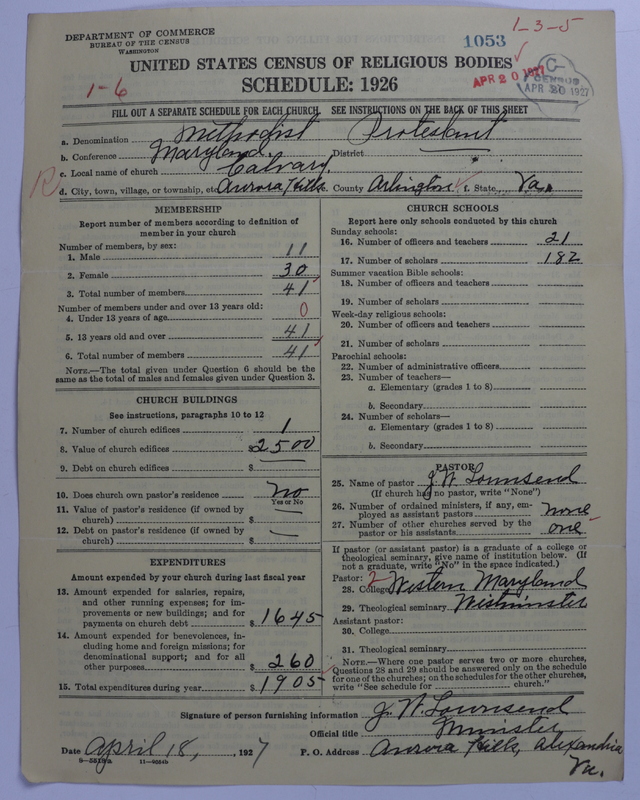 1-3-5
DEPARTMENT OF COMMERCE
BUREAU OF THE CENSUS
WASHINGTON
1053
UNITED STATES CENSUS OF RELIGIOUS BODIES
APR 20 1927
C
CENSUS
APR 20 1927
1-6
SCHEDULE: 1926
FILL OUT A SEPARATE SCHEDULE FOR EACH CHURCH. SEE INSTRUCTIONS ON THE BACK OF THIS SHEET
a. Denomination Methodist Protestant
b. Conference Maryland District
c. Local name of church Calvary
R
d. City, town, village, or township, etc. Aurora Hills e. County Arlington f. State Va.
MEMBERSHIP
Report number of members according to definition of
member in your church
Number of members, by sex:
1. Male 11
2. Female 30
3. Total number of members 41
Number of members under and over 13 years old:
4. Under 13 years of age 0
5. 13 years old and over 41
6. Total number of members 41
NOTE.—The total given under Question 6 should be the
same as the total of males and females given under Question 3.
CHURCH BUILDINGS
See instructions, paragraphs 10 to 12
7. Number of church edifices 1
8. Value of church edifices $2500
9. Debt on church edifices $
10. Does church own pastor's residence No
Yes or No
11. Value of pastor's residence (if owned by
church) $
12. Debt on pastor's residence (if owned by
church) $
EXPENDITURES
Amount expended by your church during last fiscal year
13. Amount expended for salaries, repairs,
and other running expenses; for im-
provements or new buildings; and for
payments on church debt $1645
14. Amount expended for benevolences, in-
cluding home and foreign missions; for
denominational support; and for all
other purposes $260
15. Total expenditures during year $1905
CHURCH SCHOOLS
Report here only schools conducted by this church
Sunday schools:
16. Number of officers and teachers 21
17. Number of scholars 182
Summer vacation Bible schools:
18. Number of officers and teachers
19. Number of scholars
Week-day religious schools:
20. Number of officers and teachers
21. Number of scholars
Parochial schools:
22. Number of administrative officers
23. Number of teachers—
a. Elementary (grades 1 to 8)
b. Secondary
24. Number of scholars—
a. Elementary (grades 1 to 8)
b. Secondary
PASTOR
25. Name of pastor J. W. Townsend
(If church has no pastor, write "None")
26. Number of ordained ministers, if any, em-
ployed as assistant pastors none
27. Number of other churches served by the
pastor or his assistants one
If pastor (or assistant pastor) is a graduate of a college or
theological seminary, give name of institution below. (If
not a graduate, write "No" in the space indicated.)
Pastor: 2
28. College Western Maryland
29. Theological seminary Westminster
Assistant pastor:
30. College
31. Theological seminary
NOTE.—Where one pastor serves two or more churches,
Questions 28 and 29 should be answered only on the schedule
for one of the churches; on the schedules for the other churches,
write "See schedule for church."
Signature of person furnishing information J. W. Townsend
Official title Minister
Date April 18, 1927 P. O. Address Aurora Hills, Alexandria
Va.
11—9054b